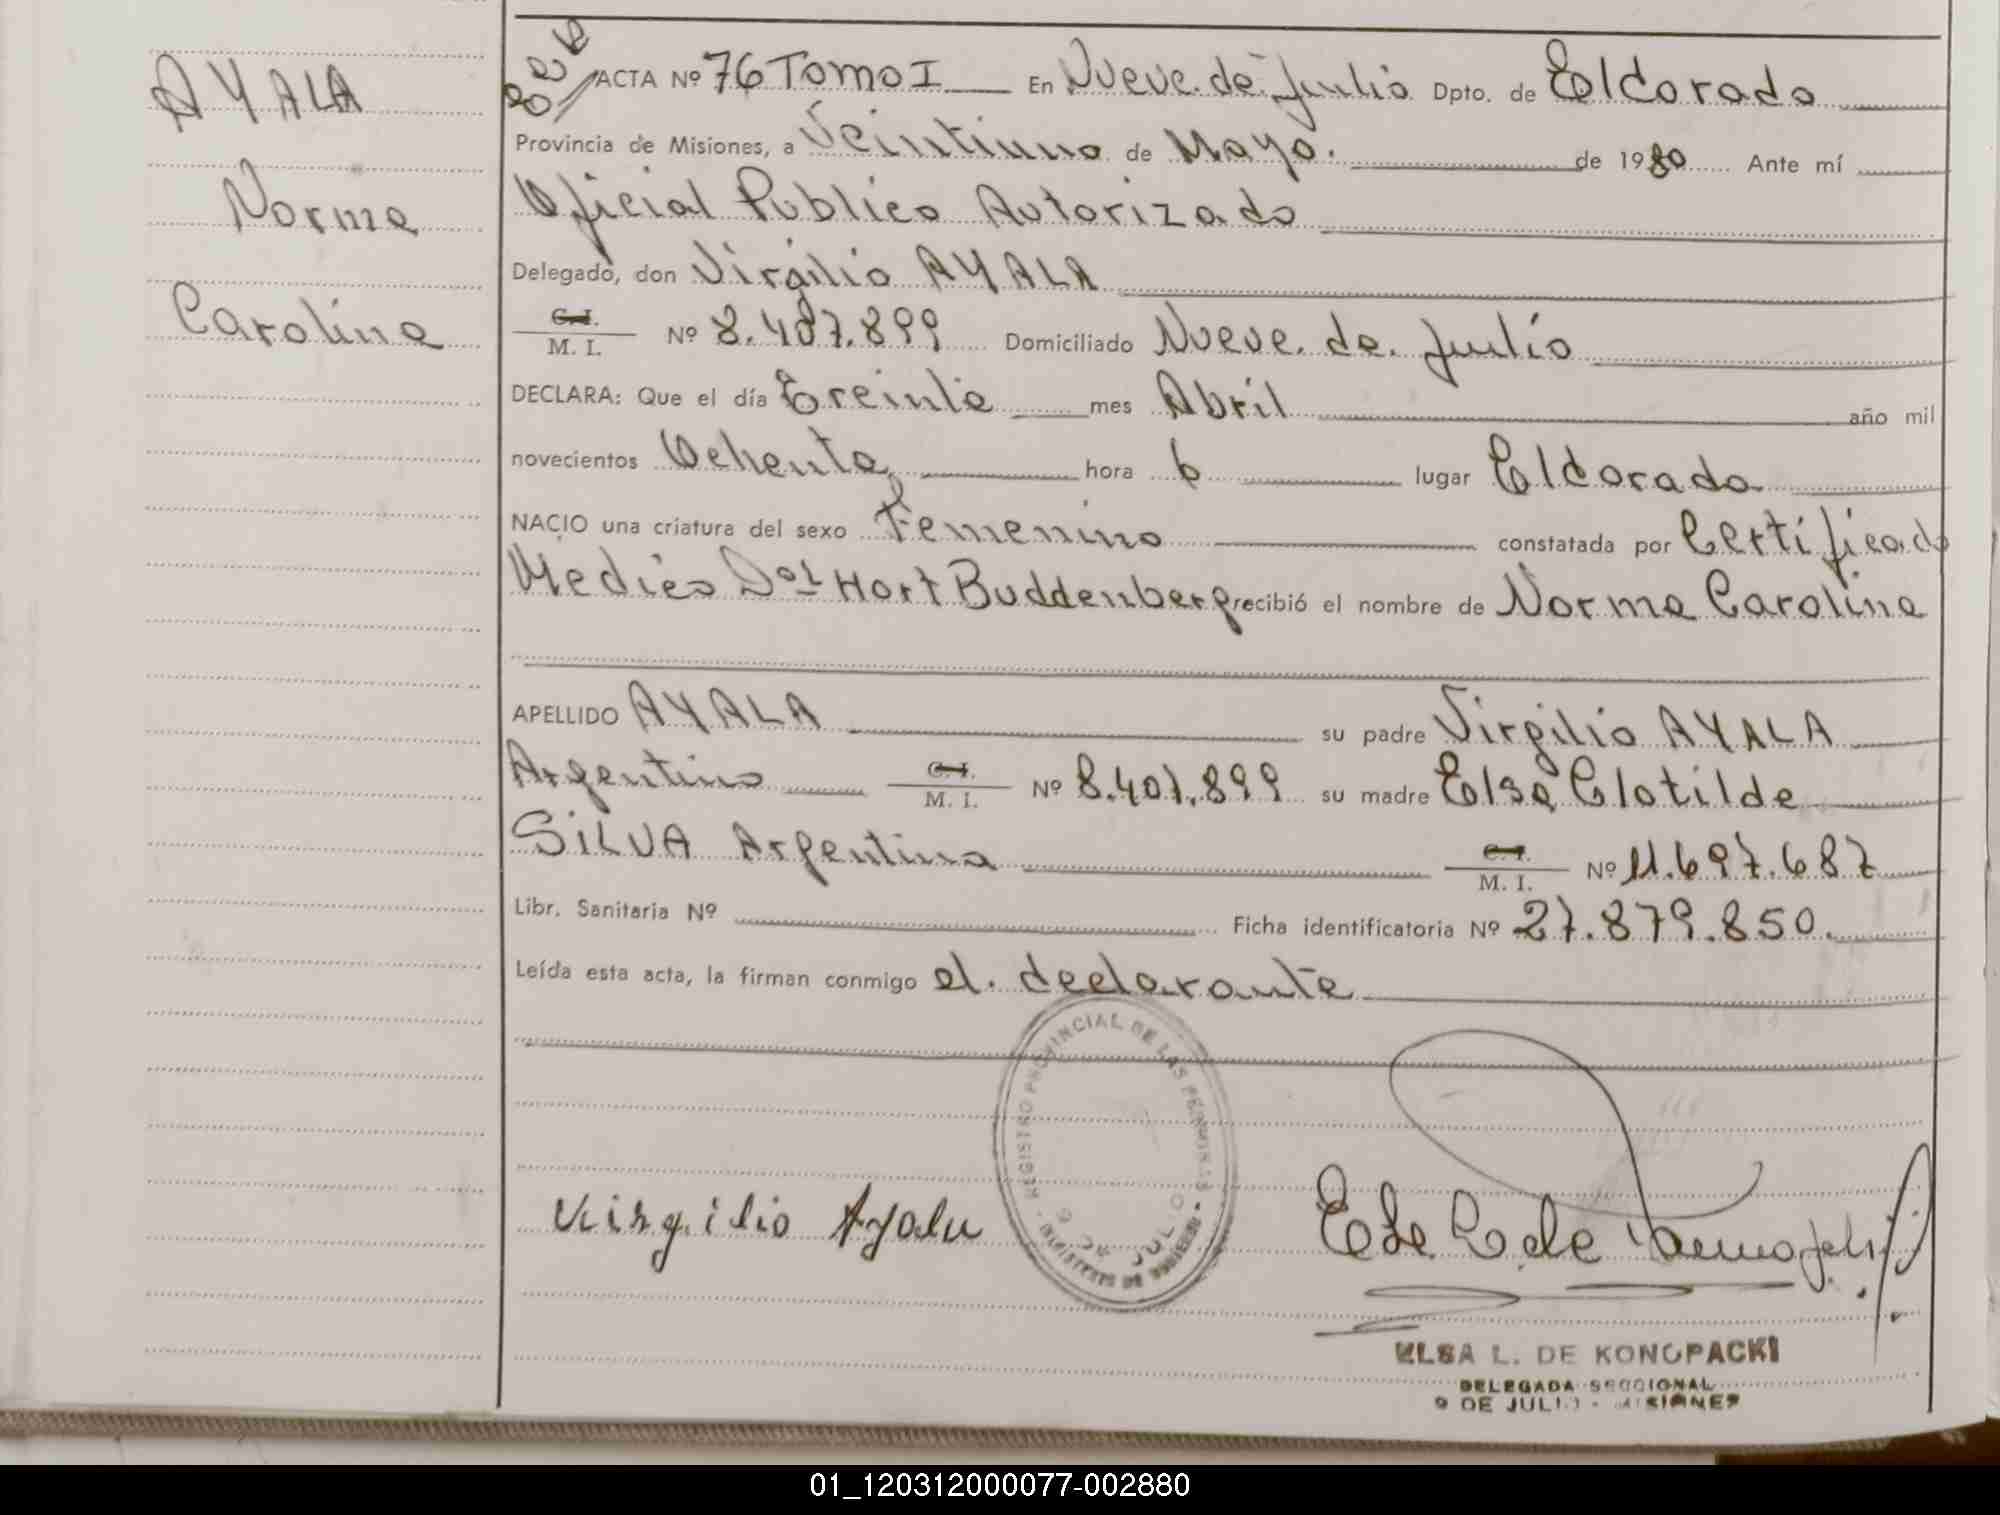 AYALA
Norma
Carolina
ACTA Nº 76 Tomo I En Nueve de Julio Dpto. de Eldorado
Provincia de Misiones, a Veintiuno de Mayo. de 1980 Ante mí
Oficial Publico Autorizado
Delegado, don Virgilio AYALA
C. I.
M. I. Nº 8.407.899 Domiciliado Nueve de Julio
DECLARA: Que el día Treinta mes Abril año mil
novecientos Ochenta hora 6 lugar Eldorado
NACIO una criatura del sexo Femenino constatada por Certificado
Medico Hort Buddenberg recibió el nombre de Norma Carolina
APELLIDO AYALA su padre Virgilio AYALA
Argentino C. I.
M. I. Nº 8.407.899 su madre Elsa Clotilde
SILVA Argentina C. I.
M. I. Nº 11.697.687
Libr. Sanitaria Nº Ficha identificatoria Nº 27.879.850.
Leída esta acta, la firman conmigo el declarante
REGISTRO PROVINCIAL DE LAS PERSONAS
9 DE JULIO
MINISTERIO DE GOBIERNO
Virgilio Ayala
ELSA L. DE KONOPACKI
DELEGADA SECCIONAL
9 DE JULIO - MISIONES
01_120312000077-002880